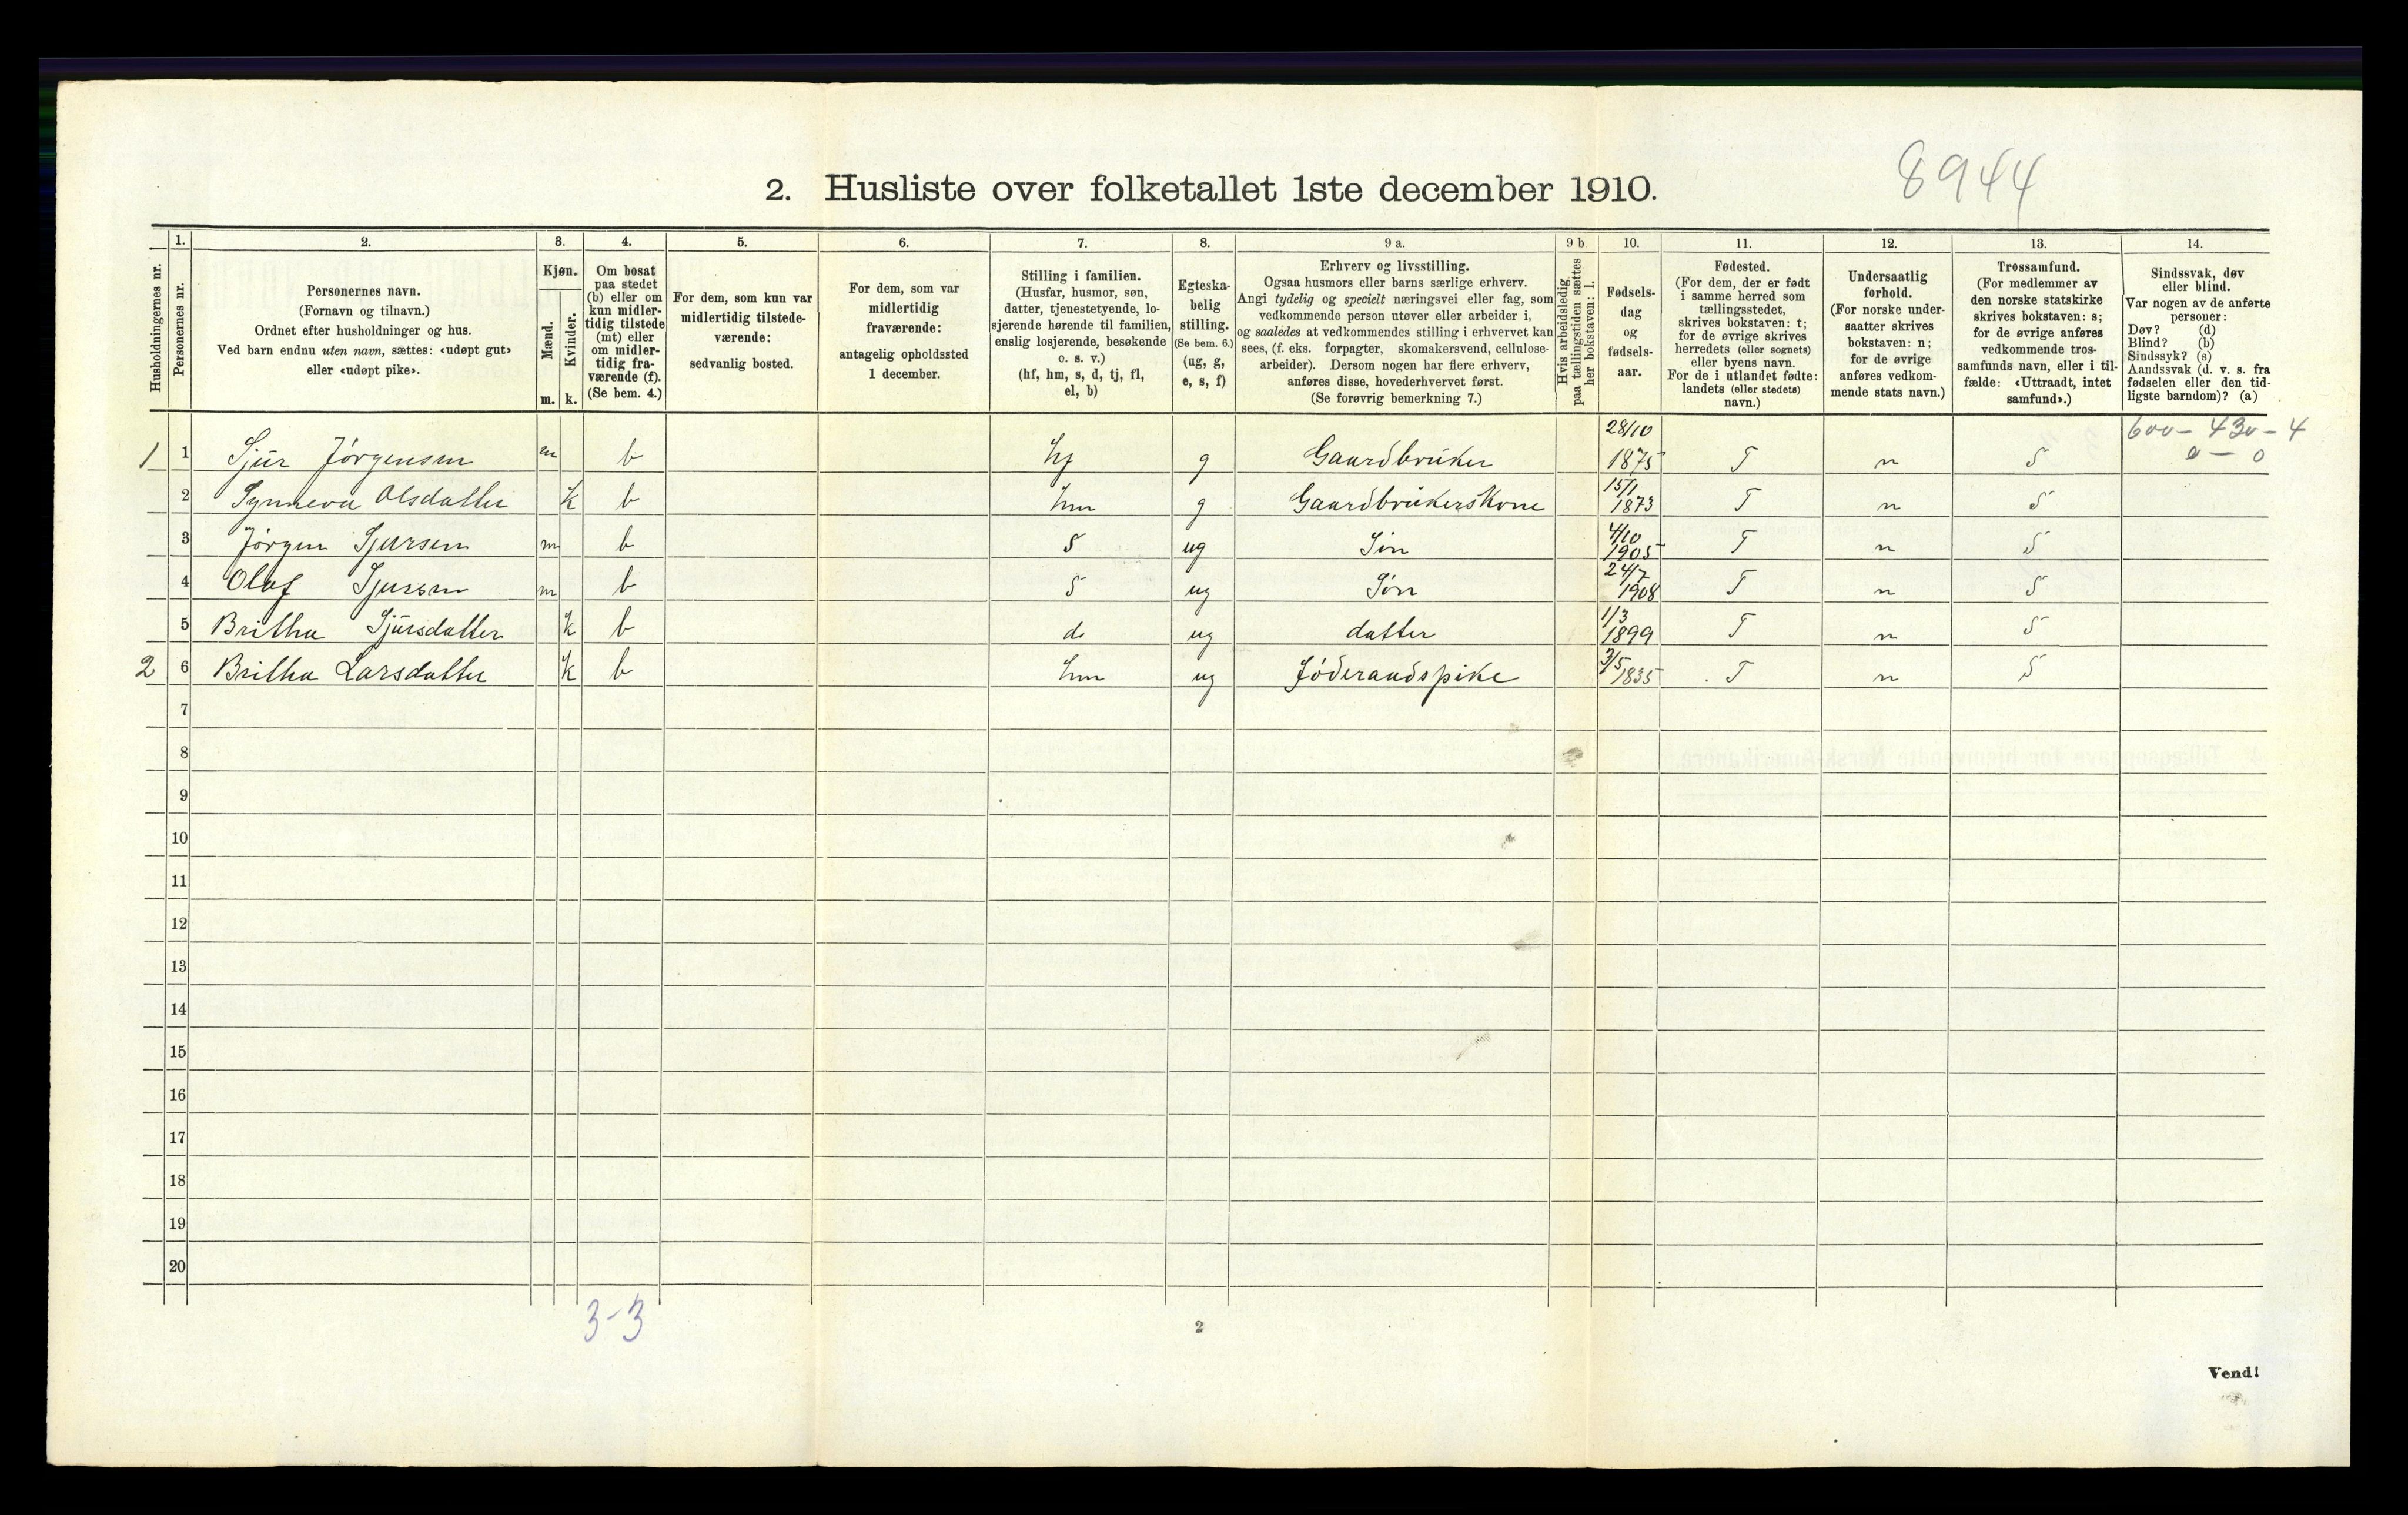 8944
2. Husliste over folketallet 1ste december 1910.
Husholdningernes nr.
1.
Personernes nr.
2.
Personernes navn.
(Fornavn og tilnavn.)
Ordnet efter husholdninger og hus.
Ved barn endnu uten navn, sættes: «udøpt gut»
eller «udøpt pike».
3.
Kjøn.
Mænd.
Kvinder.
m. k.
4.
Om bosat
paa stedet
(b) eller om
kun midler-
tidig tilstede
(mt) eller
om midler-
tidig fra-
værende (f).
(Se bem. 4.)
5.
For dem, som kun var
midlertidig tilstede-
værende:
sedvanlig bosted.
6.
For dem, som var
midlertidig
fraværende:
antagelig opholdssted
1 december.
7.
Stilling i familien.
(Husfar, husmor, søn,
datter, tjenestetyende, lo-
sjerende hørende til familien,
enslig losjerende, besøkende
o. s. v.)
(hf, hm, s, d, tj, fl,
el, b)
8.
Egteska-
belig
stilling.
(Se bem. 6.)
(ug, g,
e, s, f)
9 a.
Erhverv og livsstilling.
Ogsaa husmors eller barns særlige erhverv.
Angi tydelig og specielt næringsvei eller fag, som
vedkommende person utøver eller arbeider i,
og saaledes at vedkommendes stilling i erhvervet kan
sees, (f. eks. forpagter, skomakersvend, cellulose-
arbeider). Dersom nogen har flere erhverv,
anføres disse, hovederhvervet først.
(Se forøvrig bemerkning 7.)
9 b
Hvis arbeidsledig
paa tællingstiden sættes
her bokstaven: l.
10.
Fødsels-
dag
og
fødsels-
aar.
11.
Fødested.
(For dem, der er født
i samme herred som
tællingsstedet,
skrives bokstaven: t;
for de øvrige skrives
herredets (eller sognets)
eller byens navn.
For de i utlandet fødte:
landets (eller stedets)
navn.)
12.
Undersaatlig
forhold.
(For norske under-
saatter skrives
bokstaven: n;
for de øvrige
anføres vedkom-
mende stats navn.)
13.
Trossamfund.
(For medlemmer av
den norske statskirke
skrives bokstaven: s;
for de øvrige anføres
vedkommende tros-
samfunds navn, eller i til-
fælde: «Uttraadt, intet
samfund».)
14.
Sindssvak, døv
eller blind.
Var nogen av de anførte
personer:
Døv? (d)
Blind? (b)
Sindssyk? (s)
Aandssvak (d. v. s. fra
fødselen eller den tid-
ligste barndom)? (a)
600 - 430 - 4
0 - 0
1 1 Sjur Jørgensen m b hf g Gaardbruker 28/10 1875 T n S
2 Synneva Olsdatter k b hm g Gaardbrukerskone 15/1 1873 T n S
3 Jørgen Sjursen m b S ug Søn 4/10 1905 T n S
4 Olaf Sjursen m b S ug Søn 24/7 1908 T n S
5 Britha Sjursdatter k b d. ug datter 1/3 1899 T n S
2 6 Britha Larsdatter k b hm ug Føderaadspike 3/5 1835 T n S
7
8
9
10
11
12
13
14
15
16
17
18
19
20
3-3
2
Vend!